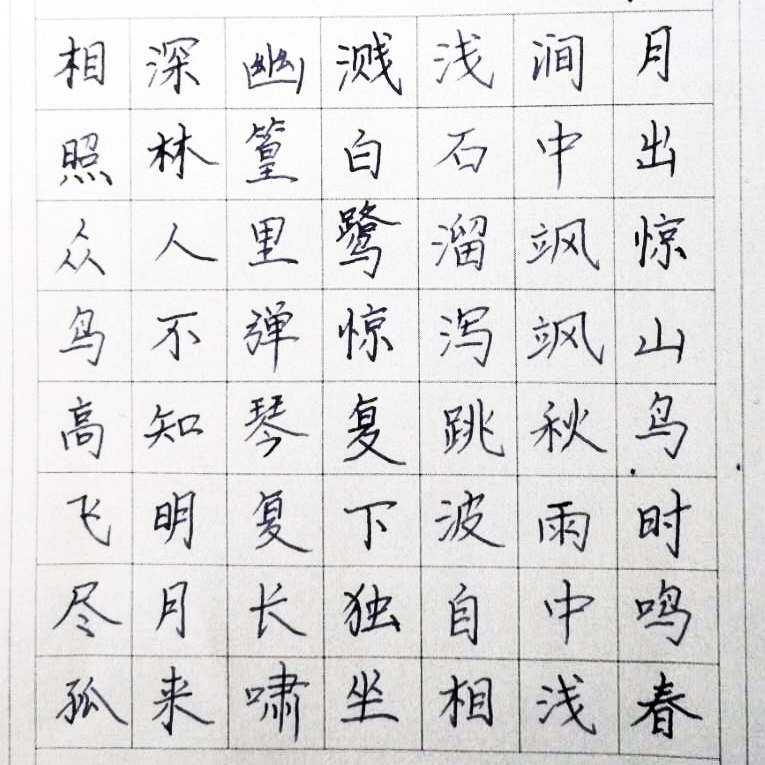 月出惊山鸟时鸣春
涧中飒飒秋雨中浅
浅石溜泻跳波自相
溅白鹭惊复下独坐
幽篁里弹琴复长啸
深林人不知明月来
相照众鸟高飞尽孤